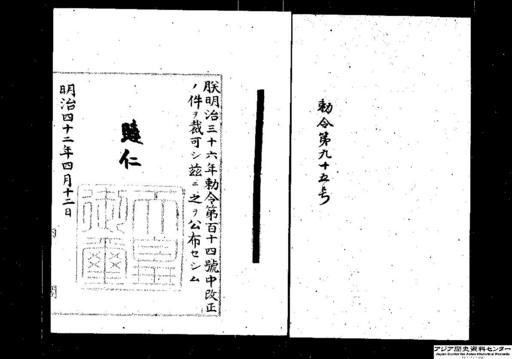 勅令第九十五号
朕明治三十六年勅令第百十四號中改正
ノ件ヲ裁可シ玆ニ之ヲ公布セシム
睦仁
天皇御璽
明治四十二年四月十二日
内 閣
アジア歴史資料センター
Japan Center for Asian Historical Records